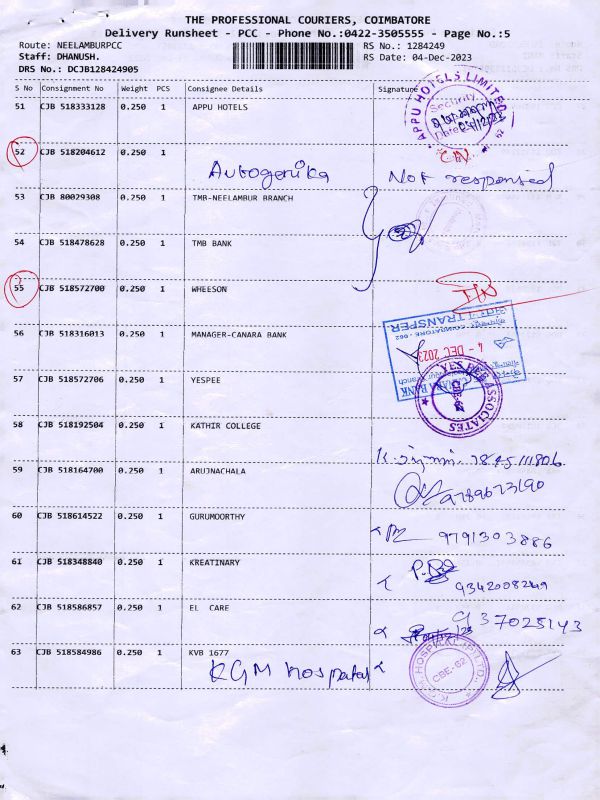 THE PROFESSIONAL COURIERS, COIMBATORE
Delivery Runsheet - PCC - Phone No.:0422-3505555 - Page No.:5
Route: NEELAMBURPCC RS No.: 1284249
Staff: DHANUSH. RS Date: 04-Dec-2023
DRS No.: DCJB128424905
S No Consignment No Weight PCS Consignee Details Signature
51 CJB 518333128 0.250 1 APPU HOTELS
APPU HOTELS LIMITED
Security
52 CJB 518204612 0.250 1
Autogenika Not responsed
53 CJB 80029308 0.250 1 TMB-NEELAMBUR BRANCH
54 CJB 518478628 0.250 1 TMB BANK
55 CJB 518572700 0.250 1 WHEESON
56 CJB 518316013 0.250 1 MANAGER-CANARA BANK
TRANSFER
COIMBATORE
4 - DEC 2023
CANARA BANK
57 CJB 518572706 0.250 1 YESPEE
YES PEE ASSOCIATES
58 CJB 518192504 0.250 1 KATHIR COLLEGE
59 CJB 518164700 0.250 1 ARUJNACHALA
60 CJB 518614522 0.250 1 GURUMOORTHY
9791303886
61 CJB 518348840 0.250 1 KREATINARY
62 CJB 518586857 0.250 1 EL CARE
63 CJB 518584986 0.250 1 KVB 1677
KGM Hospital
CBE-62